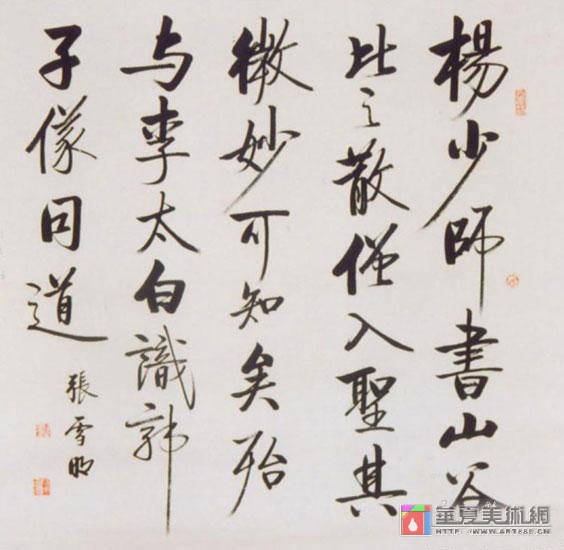 楊少師書山谷
比之散僧入聖其
微妙可知矣殆
与李太白識郭
子儀同道
張雪明
華夏美術網
www.art86.cn